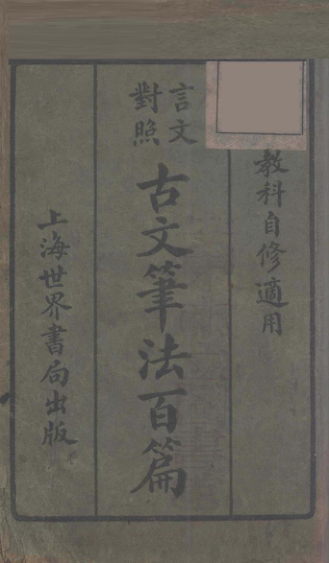 教科自修適用
言文對照
古文筆法百篇
上海世界書局出版